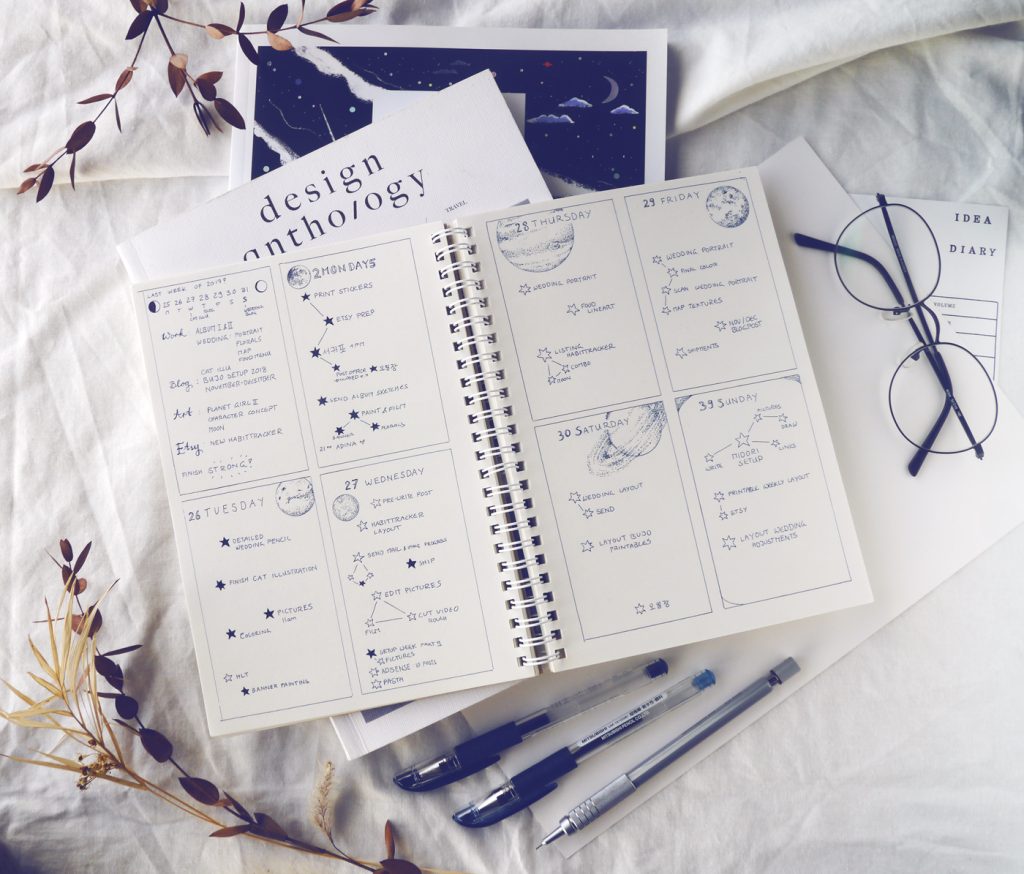 design
anthology
TRAVEL
IDEA
DIARY
VOLUME
LAST WEEK OF 2017
25 26 27 28 29 30 31
M T W T F S S
Work: ALBUM I & II
WEDDING: PORTRAIT
FLORALS
MAP
CAT ILLU
Blog: BUJO SETUP 2018
NOVEMBER-DECEMBER
Art: PLANET GIRL II
CHARACTER CONCEPT
MOON
Etsy: NEW HABITTRACKER
FINISH STRONG!
PRINT STICKERS
ETSY PREP
SEND ALBUM SKETCHES
PAINT & FILM
ADINA
26 TUESDAY
DETAILED
WEDDING PENCIL
FINISH CAT ILLUSTRATION
PICTURES
11am
COLORING
HLT
BANNER PAINTING
27 WEDNESDAY
PRE-WRITE POST
HABITTRACKER
LAYOUT
SEND MAIL & MAKE PROGRESS
SHIP
EDIT PICTURES
FILM
CUT VIDEO
ROUGH
PICTURES
ADSENSE
PASTA
28 THURSDAY
WEDDING PORTRAIT
FOOD
LINEART
LISTING
HABITTRACKER
COMBO
MOON
29 FRIDAY
WEDDING PORTRAIT
FINAL COLOR
SCAN WEDDING PORTRAIT
MAP TEXTURES
NOV/DEC
BLOGPOST
SHIPMENTS
30 SATURDAY
WEDDING LAYOUT
SEND
LAYOUT BUJO
PRINTABLES
오롱꽁
39 SUNDAY
PICTURES
DRAW
LINKS
WRITE
MIDORI
SETUP
PRINTABLE WEEKLY LAYOUT
ETSY
LAYOUT WEDDING
ADJUSTMENTS
MITSUBISHI PENCIL CO. LTD